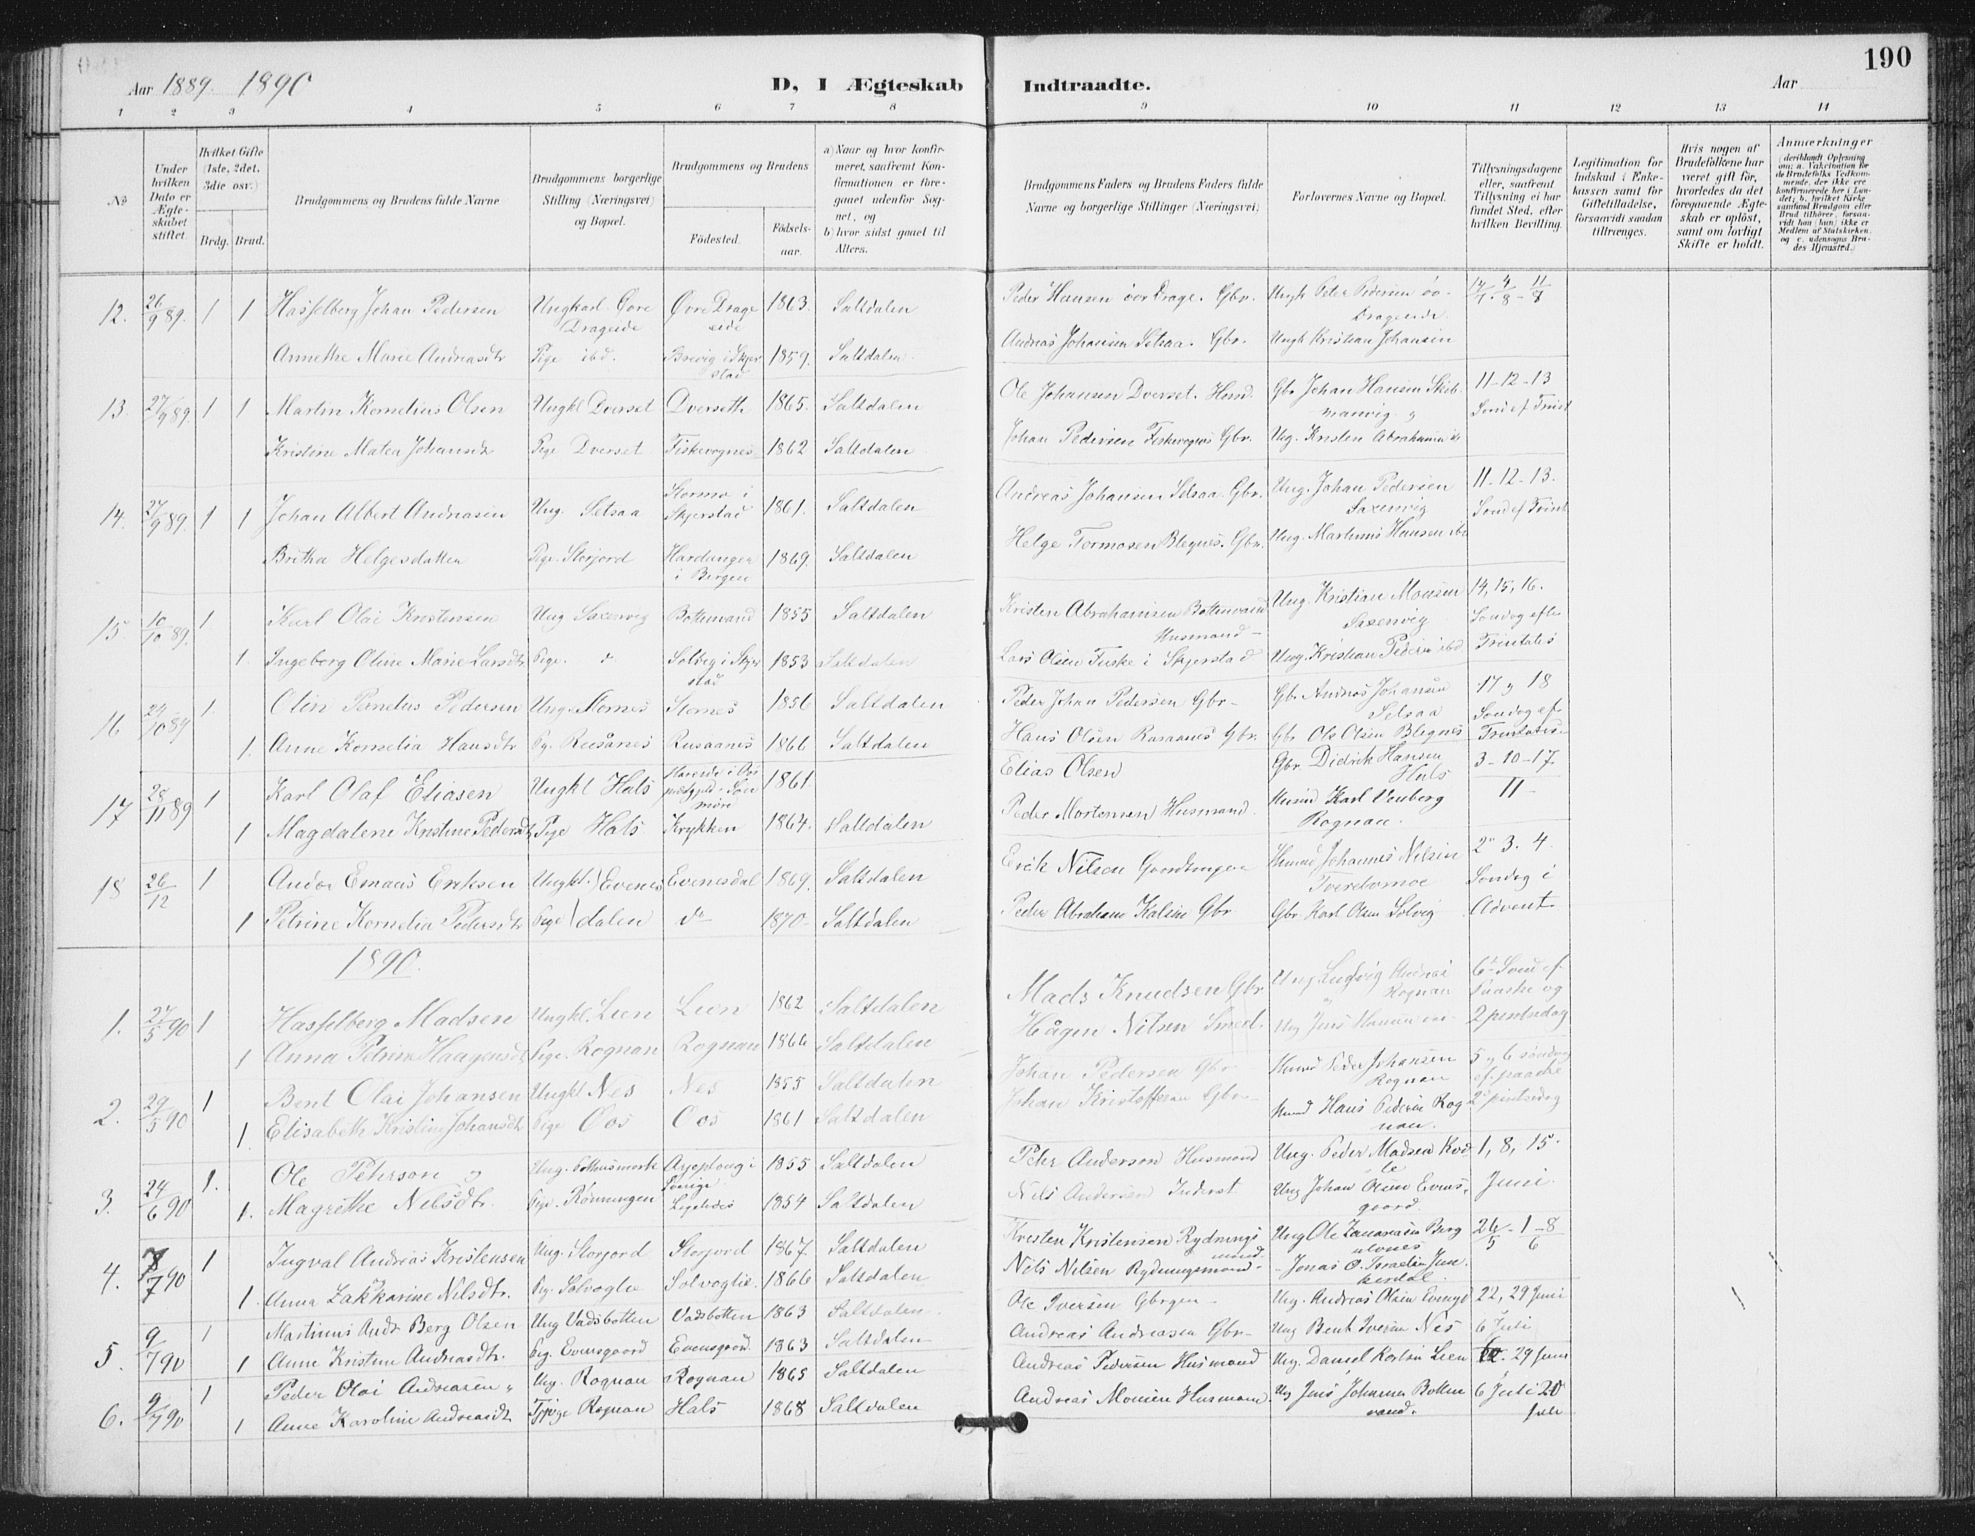 190
Aar 1889. 1890
D, I Ægteskab Indtraadte.
Aar
1 2 3 4 5 6 7 8 9 10 11 12 13 14
No
Under hvilken Dato er Ægteskabet stiftet.
Hvilket Gifte (1ste, 2det, 3die osv.)
Brdg. Brud.
Brudgommens og Brudens fulde Navne
Brudgommens borgerlige Stilling (Næringsvei) og Bopæl.
Brudgommens og Brudens
Fødested. Fødsels-aar.
a) Naar og hvor konfirmeret, saafremt Konfirmationen er foregaaet udenfor Sognet, og
b) hvor sidst gaaet til Alters.
Brudgommens Faders og Brudens Faders fulde Navne og borgerlige Stillinger (Næringsvei)
Forlovernes Navne og Bopæl.
Tillysningsdagene eller, saafremt Tillysning ei har fundet Sted, efter hvilken Bevilling.
Legitimation for Indskud i Enkekassen samt for Giftetilladelse, forsaavidt saadan tiltrænges.
Hvis nogen af Brudefolkene har været gift før, hvorledes da det foregaaende Ægteskab er opløst, samt om lovligt Skifte er holdt.
Anmærkninger
12. 26/9 89. 1 1 Hasselberg Johan Pedersen Ungkarl. Øvre Drageide Øvre Drageide 1863. Saltdalen Peder Hansen öv Drage. Gbr. Ungk Peter Pedersen öv. Drageide 14/7. 4/8 - 11/8
Annethe Marie Andreasdtr Pige ibd. Brevig i Skjerstad 1859. Saltdalen Andreas Johansen Setsaa. Gbr. Ungk Kristian Johansen
13. 27/9 89. 1 1 Martin Kornelius Olsen Ungkl Dverset Dverseth 1865. Saltdalen Ole Johansen Dverset. Husmd. Gbr Johan Hansen 11-12-13
Kristine Matea Johansdtr Pige Dverset Fiskevognes 1862 Saltdalen Johan Pedersen Fiskevognes Gbr. Ung. Kristen Abrahamsen Sönd ef Trinit
14. 27/9 89. 1 1 Johan Albert Andreasen Ung. Setsaa Stormo i Skjerstad 1861. Saltdalen Andreas Johansen Setsaa Gbr. Ung. Johan Pedersen Saxenvig 11-12-13. Sönd ef Trinit
Britha Helgesdatter Pige. Storjord Hardanger i Bergen 1869. Saltdalen Helge Tormosen Blegnes. Gbr. Ung. Martinus Hansen ibd
15. 10/10 89. 1 Karl Olai Kristensen Ung Saxenvig Bottenvand 1855 Saltdalen Kristen Abrahamsen Bottenvand Husmand - Ung. Kristian Monsen Saxenvig 14, 15, 16. Söndag efter
1. Ingeborg Oline Marie Larsdtr Pige. Solvig i Skjerstad 1853 Saltdalen Lars Olsen Fuske i Skjerstad Ung. Kristian Pedersen ibd Trinitatis
16 24/10 89 1. Olin Pernelius Pedersen Ung. Stornes Stornes 1856 Saltdalen Peder Johan Pedersen Gbr- Gbr Andreas Johansen Setsaa 17 og 18 Söndag ef
1. Anne Kornelia Hansdtr Pg. Rusånes Rusaanes 1866 Saltdalen Hans Olsen Rusaanes Gbr. Gbr Ole Olsen Blegnes Trinitatis
17 28/11 89 1 Karl Olaf Eliasen Ungkl Hals 1861 Elias Olsen Gbr. Didrik Hansen Hals 3-10-17.
1 Magdalene Kristine Pedersdtr Pige Hals Krykken 1864. Saltdalen Peder Mortensen Husmand. Husmd Karl Venberg Rognan. 11-
18 26/12 1 Andor Emaus Eriksen Ungkl. Evenesdalen Evenesdal 1869. Saltdalen Erik Nilsen Gaardbruger Husmd Johannes Nilsen 2. 3. 4. Söndag i
1 Petrine Kornelia Pedersdtr Pige do 1870- Saltdalen Peder Abraham Kalsen Gbr Gbr. Karl Olsen Solvig Advent
1890.
1. 27/5 90 1 Hasselberg Madsen Ungkl. Lien Lien 1862 Saltdalen Mads Knudsen Gbr Ung Ludvig Andreas Rognan 6te Sönd ef. paaske og
1 Anna Petrine Haagensdtr Pige. Rognan Rognan 1866 Saltdalen Hågen Nilsen Smed. Ung Jens Hansen 2 pintsdag
2. 29/5 90 1 Bent Olai Johansen Ungkl Nes Nes 1855 Saltdalen Johan Pedersen Gbr Husmd Peder Johansen Rognan 5 og 6 söndag ef. paaske
1. Elisabeth Kristine Johansdtr Pige Oos Oos 1861 Saltdalen Johan Kristoffersen Gbr- Husmd Hans Pedersen Rognan. 2 pintsdag
3. 24/6 90 1. Ole Pehrson og Ung. Pothusmark Arjeploug i Sverige 1855 Saltdalen Pehr Anderson Husmand Ung. Peder Madsen 1, 8, 15.
1. Magrethe Nilsdtr. Pige. Rönningen 1854 Saltdalen Nils Andersen Inderst Ung Johan Olsen Evensgaard. Juni.
4. 7/7 90 1 Ingval Andreas Kristensen Ung. Storjord Storjord 1867. Saltdalen Kresten Kristensen Rydningsmand Ung Ole Zakariasen Berg 26/5 - 1-8/6
1. Anna Zakkarine Nilsdtr. Pg. Solvoglie Solvoglie. 1866 Saltdalen Nils Nilsen Rydningsmand- Jonas O. Israelsen Junkerdal
5. 9/7 90 1 Martinus Andr Berg Olsen Ung Vadsbotten Vadsbotten 1863 Saltdalen Ole Iversen Gbrger - Ung. Andreas Olsen 22, 29 Juni
1 Anne Kristine Andreasdtr. Pg. Evensgaard Evensgaard. 1863 Saltdalen Andreas Andreasen Gbr- Ung Bent Iversen Nes 6 Juli
6. 9/7 90 1 Peder Olai Andreasen " Ung. Rognan Rognan 1865 Saltdalen Andreas Pedersen Husmand Ung. Daniel Lien 29 Juni
1 Anne Karoline Andreasdtr Pige Rognan Hals 1868 Saltdalen Andreas Monsen Husmand. Ung Jens Johannes Bottenvand. 6 Juli 20